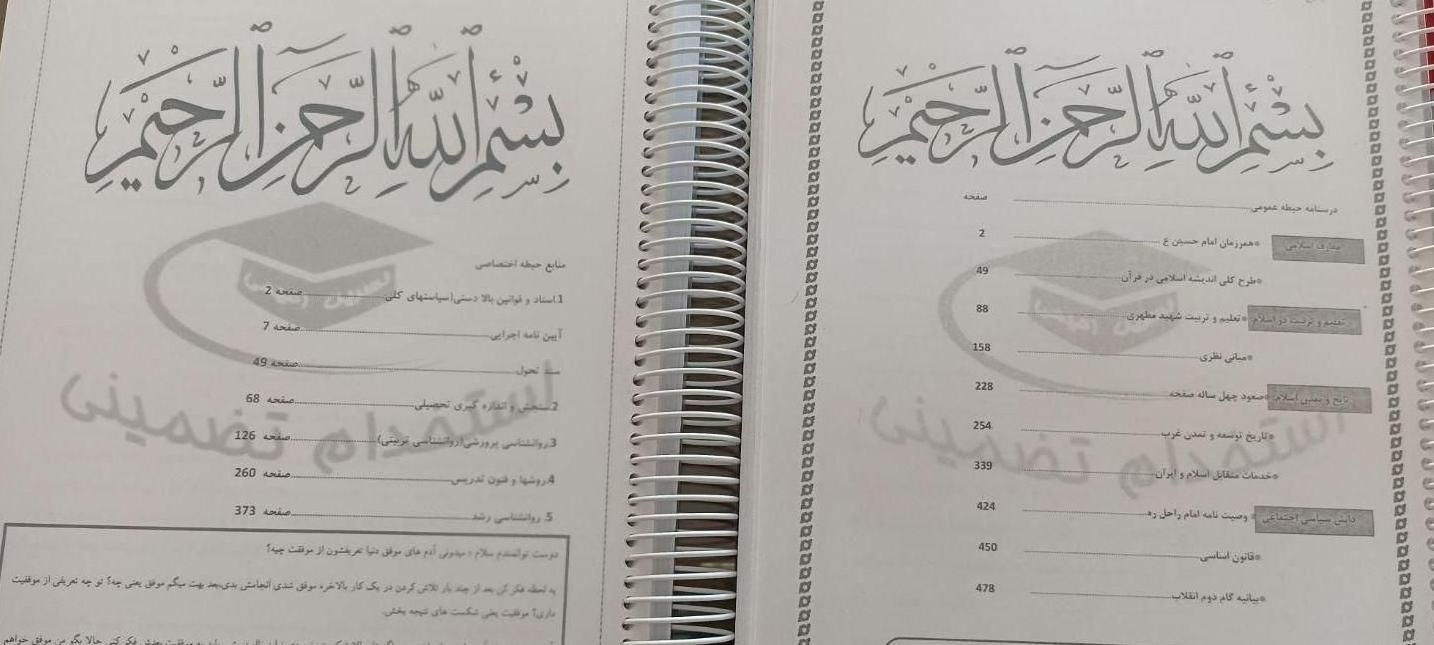 بسم الله الرحمن الرحیم
درسنامه حیطه عمومی صفحه
معارف اسلامی *همرزمان امام حسین ع 2
*طرح کلی اندیشه اسلامی در قرآن 49
تعلیم و تربیت در اسلام *تعلیم و تربیت شهید مطهری 88
*مبانی نظری 158
تاریخ و تمدن اسلام *صعود چهل ساله صفحه 228
*تاریخ توسعه و تمدن غرب 254
*خدمات متقابل اسلام و ایران 339
دانش سیاسی اجتماعی *وصیت نامه امام راحل ره 424
*قانون اساسی 450
*بیانیه گام دوم انقلاب 478
استخدام تضمینی
بسم الله الرحمن الرحیم
منابع حیطه اختصاصی
1.اسناد و قوانین بالا دستی(سیاستهای کلی صفحه 2
آیین نامه اجرایی صفحه 7
سند تحول صفحه 49
2.سنجش و اندازه گیری تحصیلی صفحه 68
3.روانشناسی پرورشی(روانشناسی تربیتی) صفحه 126
4.روشها و فنون تدریس صفحه 260
5. روانشناسی رشد صفحه 373
استخدام تضمینی
دوست توانمندم سلام ، میدونی آدم های موفق دنیا تعریفشون از موفقت چیه؟
یه لحظه فکر کن بعد از چند بار تلاش کردن در یک کار بالاخره موفق شدی انجامش بدی،بعد بهت میگم موفق یعنی چه؟ تو چه تعریفی از موفقیت
داری؟ موفقیت یعنی شکست های نتیجه بخش.
موفقیت بعدش فکر کنی حالا بگو من موفق خواهم